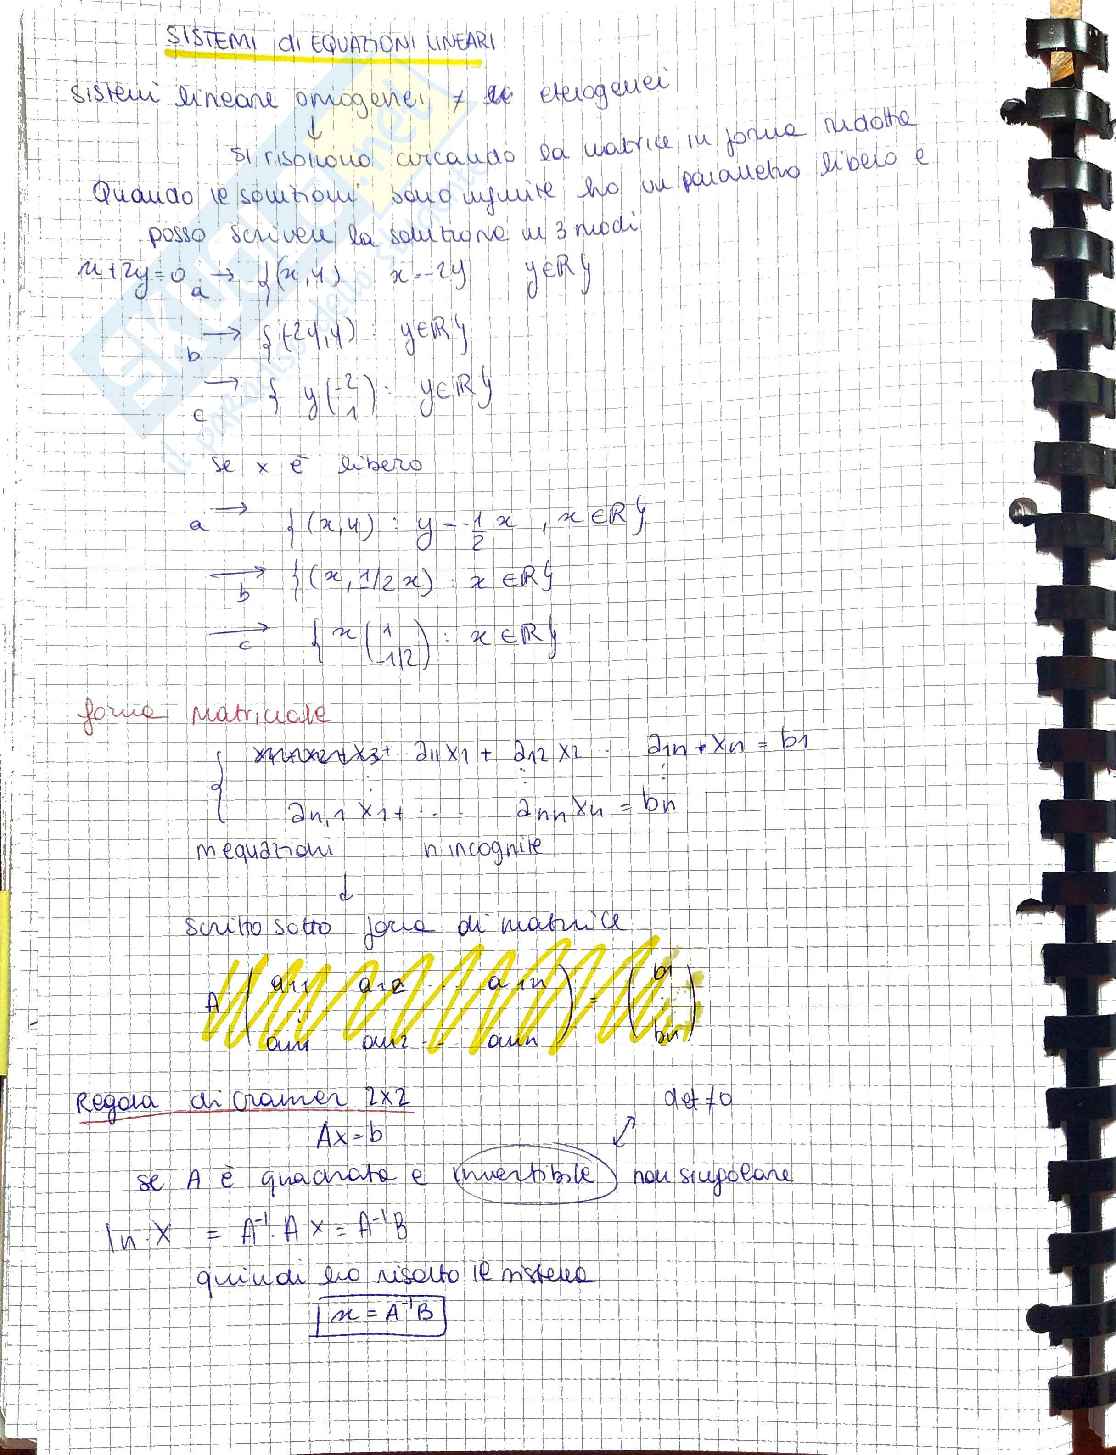 SISTEMI di EQUAZIONI LINEARI
Sistemi lineare omogenei ≠ eterogenei
↓
si risolvono cercando la matrice in forma ridotta
Quando le soluzioni sono infinite ho un parametro libero e
posso scrivere la soluzione in 3 modi
x+2y=0 a → {(x,y) x=-2y y∈ℝ}
b → {(-2y,y) : y∈ℝ}
c → { y(-2 1) : y∈ℝ}
se x è libero
a → {(x,y) : y - 1/2 x , x∈ℝ}
b → {(x, 1/2 x) : x∈ℝ}
c → { x(1 -1/2) : x∈ℝ}
forma matriciale
a11x1 + a12x2 . a1n + xn = b1
an,1x1+ ... annxn = bn
m equazioni n incognite
↓
scritto sotto forma di matrice
A (a11 a12 .. a1n) = (b1
am1 am2 .. amn) bn)
Regola di Cramer 2x2 det≠0
Ax=b
se A è quadrata e invertibile non singolare
In·X = A⁻¹·A x = A⁻¹B
quindi ho risolto il sistema
x = A⁻¹B